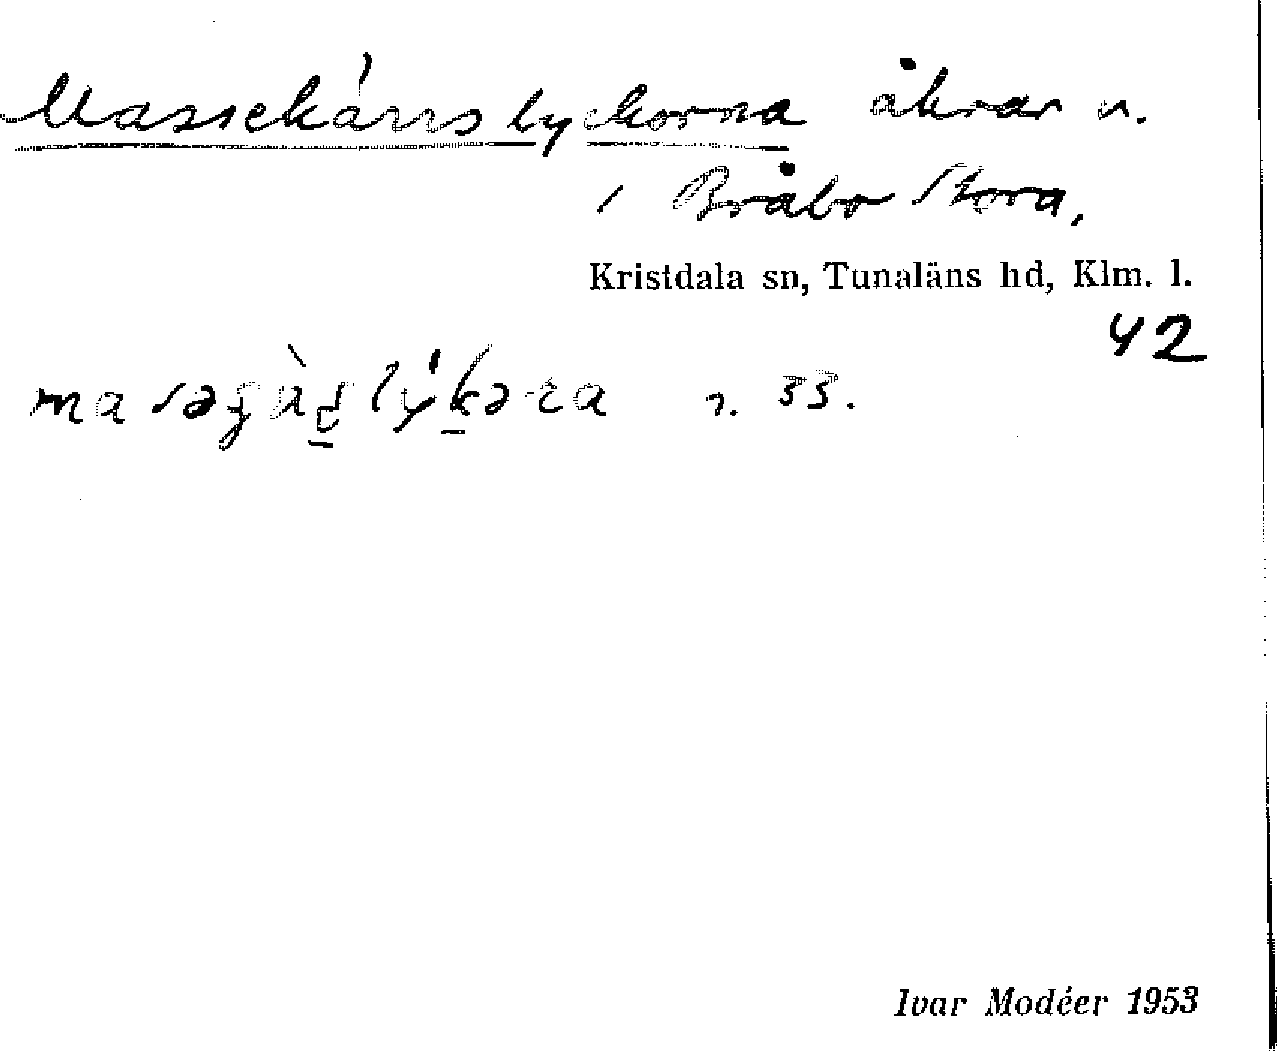 Massekärrslyckorna åkrar n.
i Bråbo Stora.
Kristdala sn, Tunaläns hd, Klm. l.
42
n. 33.
Ivar Modéer 1953